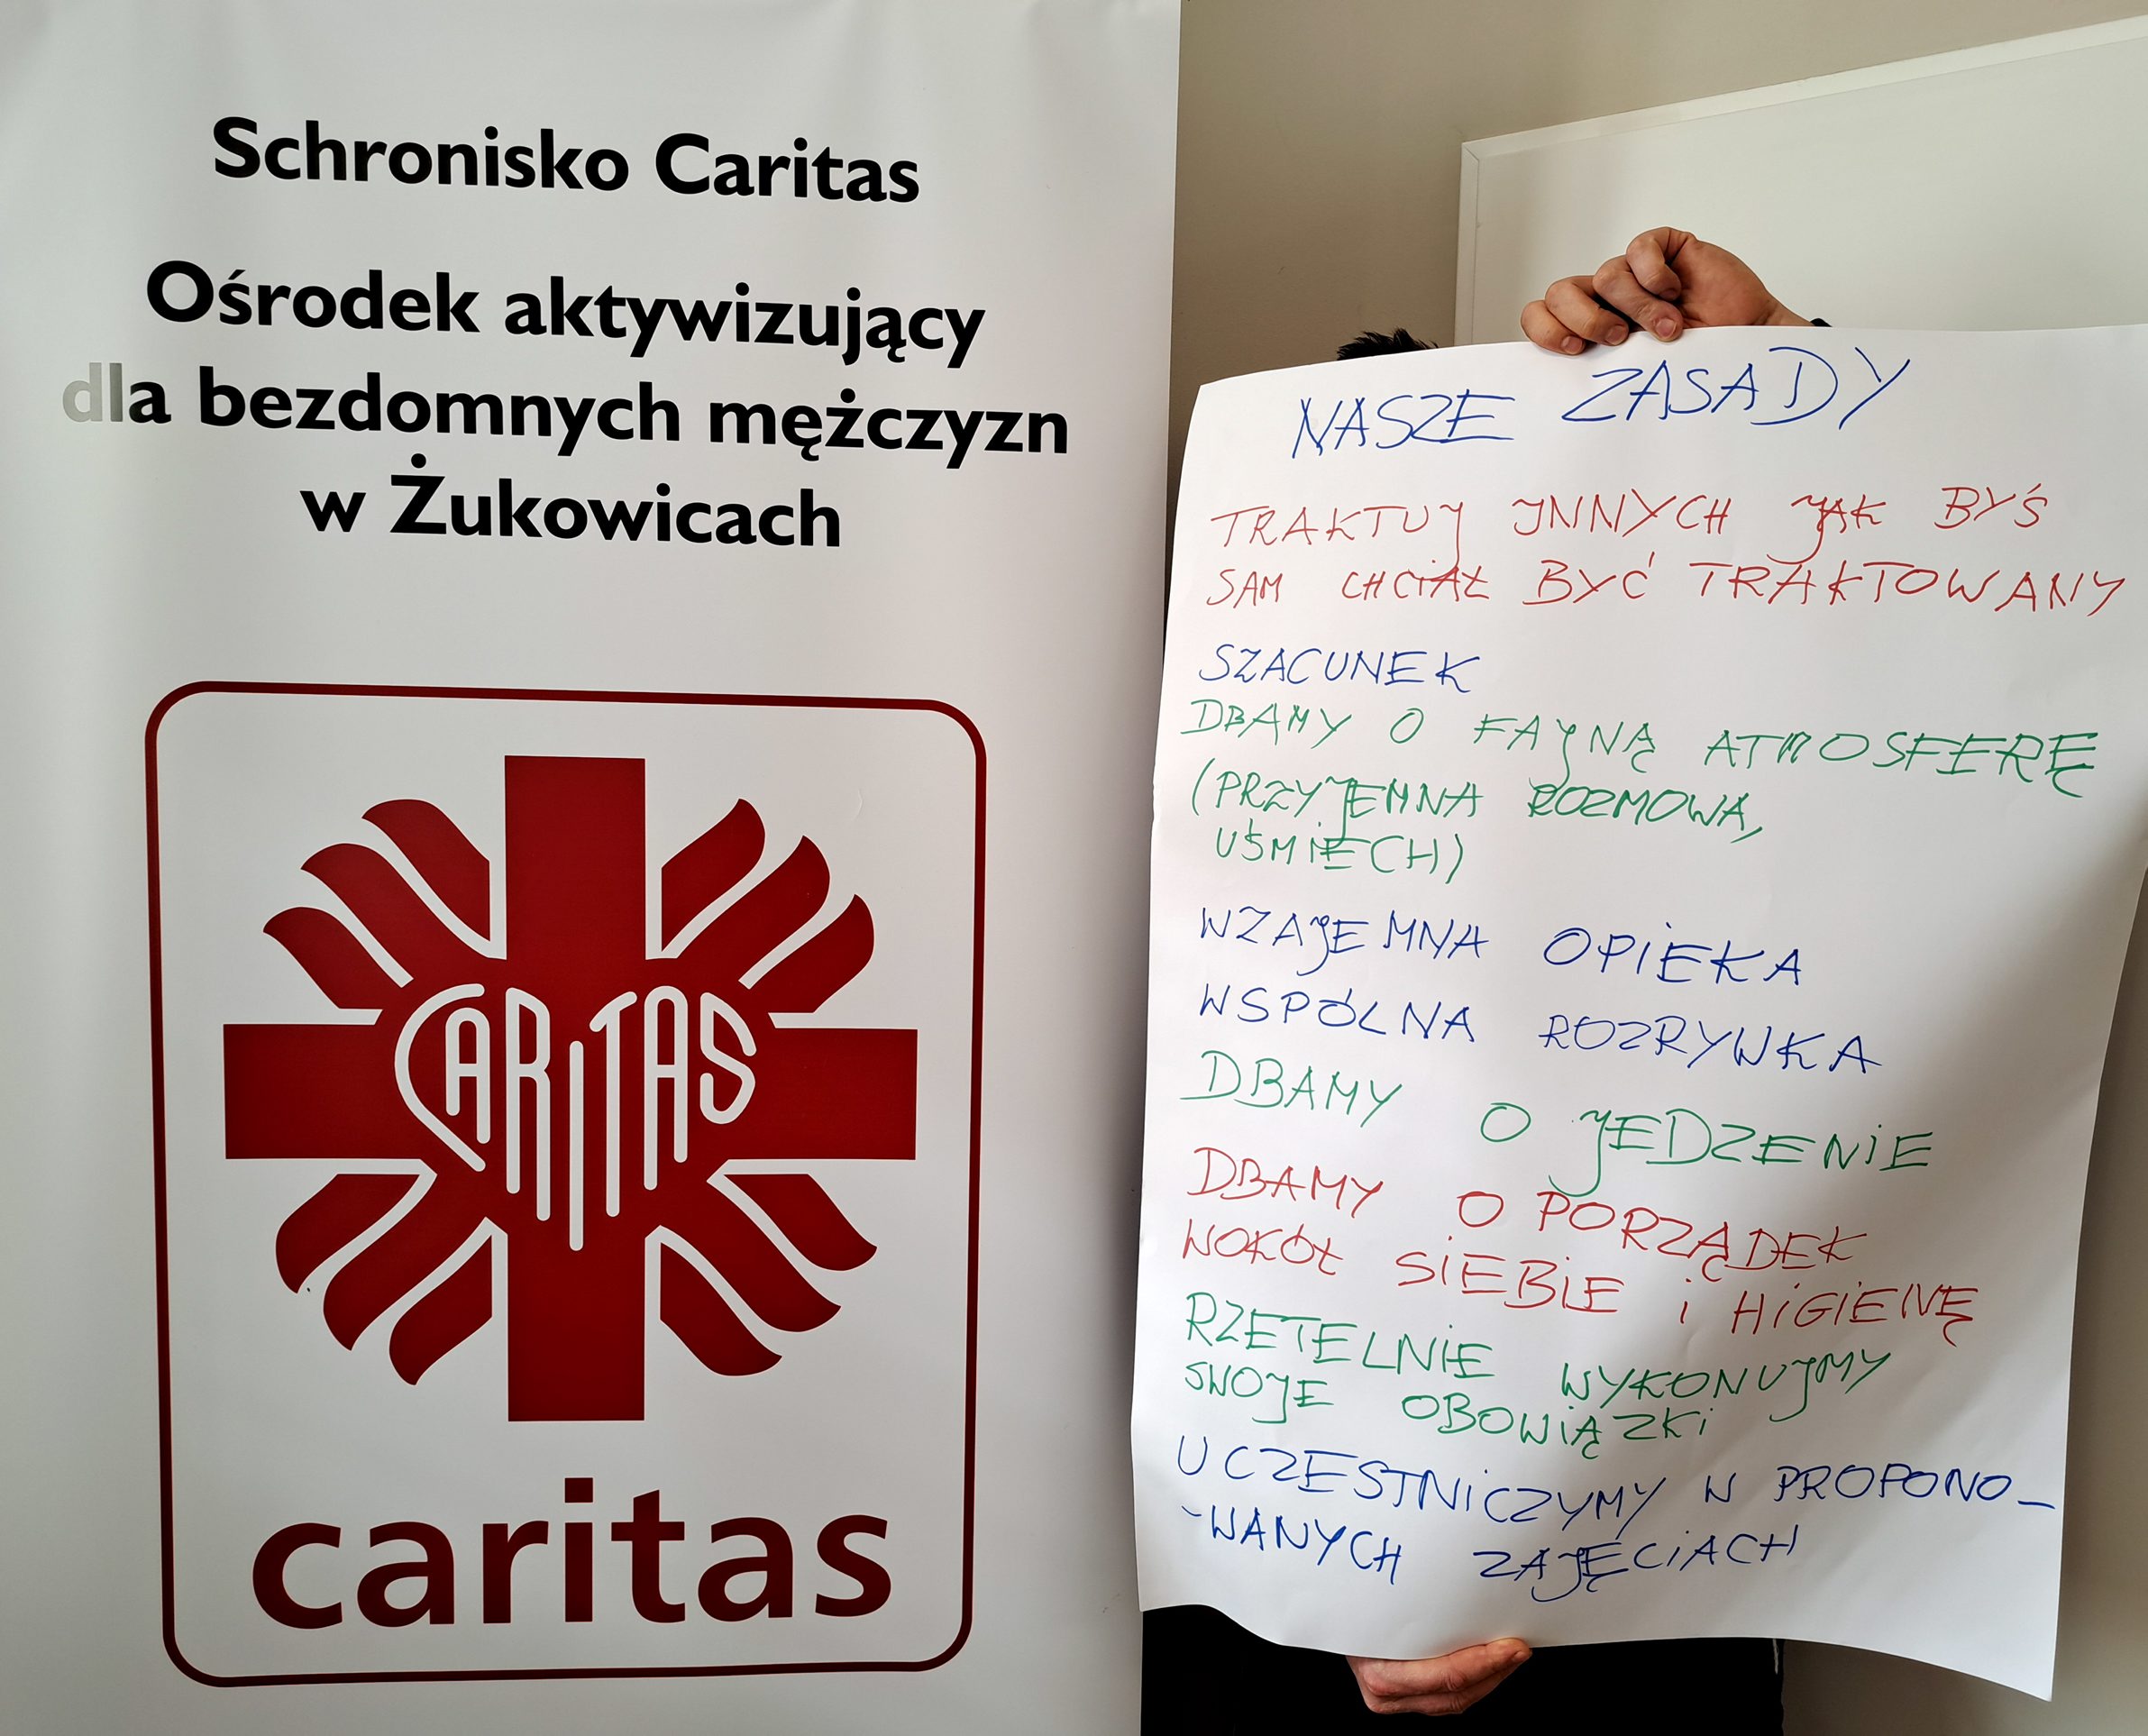 Schronisko Caritas
Ośrodek aktywizujący
dla bezdomnych mężczyzn
w Żukowicach
CARITAS
caritas
NASZE ZASADY
TRAKTUJ INNYCH JAK BYŚ
SAM CHCIAŁ BYĆ TRAKTOWANY
SZACUNEK
DBAMY O FAJNĄ ATMOSFERĘ
(PRZYJEMNA ROZMOWA,
UŚMIECH)
WZAJEMNA OPIEKA
WSPÓLNA ROZRYWKA
DBAMY O JEDZENIE
DBAMY O PORZĄDEK
WOKÓŁ SIEBIE i HIGIENĘ
RZETELNIE WYKONUJMY
SWOJE OBOWIĄZKI
UCZESTNICZYMY W PROPONO-
-WANYCH ZAJĘCIACH